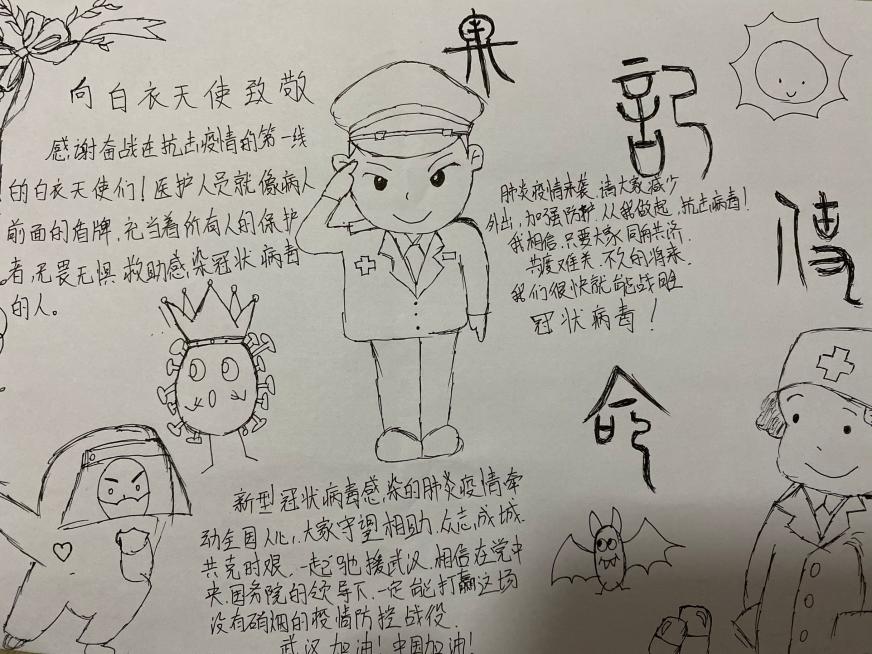 向白衣天使致敬
感谢奋战在抗击疫情的第一线
的白衣天使们！医护人员就像病人
前面的盾牌，充当着所有人的保护
者，无畏无惧.救助感染冠状病毒
的人。
记
传
命
肺炎疫情来袭，请大家减少
外出，加强防护，从我做起，抗击病毒！
我相信.只要大家同舟共济.
共度难关.不久的将来.
我们很快就能战胜
冠状病毒！
新型冠状病毒感染的肺炎疫情牵
动全国人心，大家守望相助.众志成城.
共克时艰.一起驰援武汉.相信在党中
央.国务院的领导下.一定能打赢这场
没有硝烟的疫情防控战役.
武汉加油！中国加油！